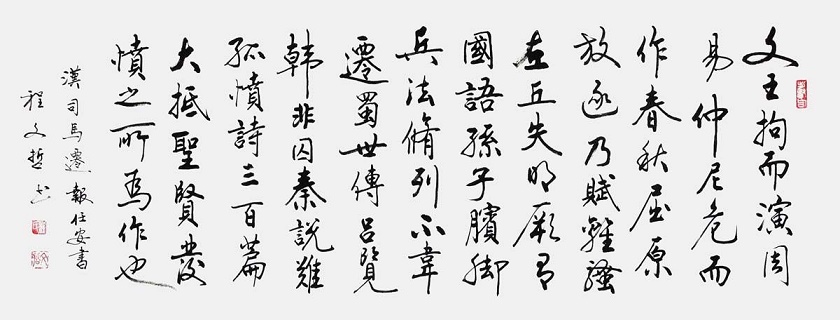 文王拘而演周
易仲尼危而
作春秋屈原
放逐乃賦離騷
左丘失明厥有
國語孫子臏腳
兵法脩列不韋
遷蜀世傳呂覽
韓非囚秦說難
孤憤詩三百篇
大抵聖賢發
憤之所為作也
漢司馬遷報任安書
程文哲书